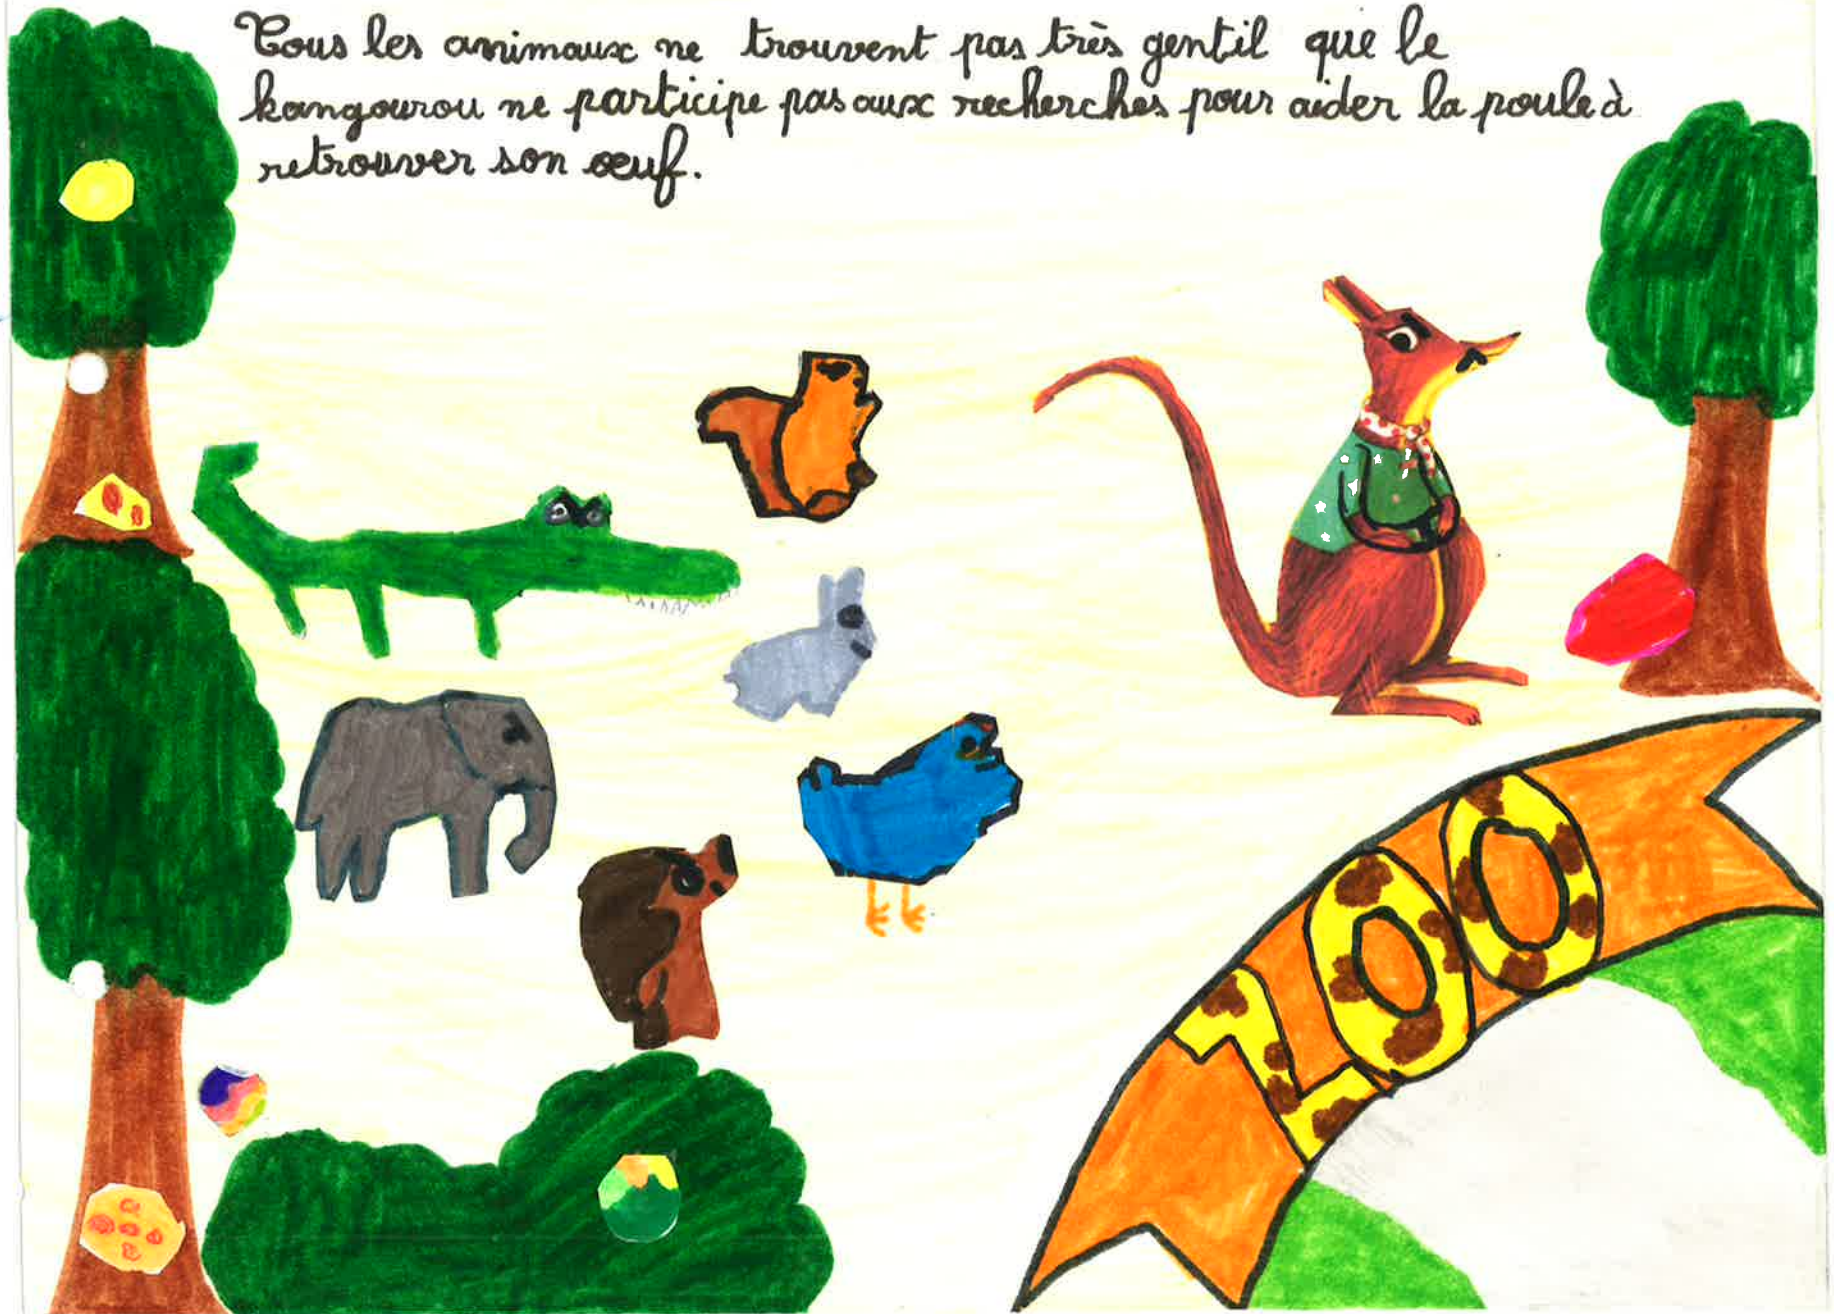 Tous les animaux ne trouvent pas très gentil que le
kangourou ne participe pas aux recherches pour aider la poule à
retrouver son œuf.
ZOO